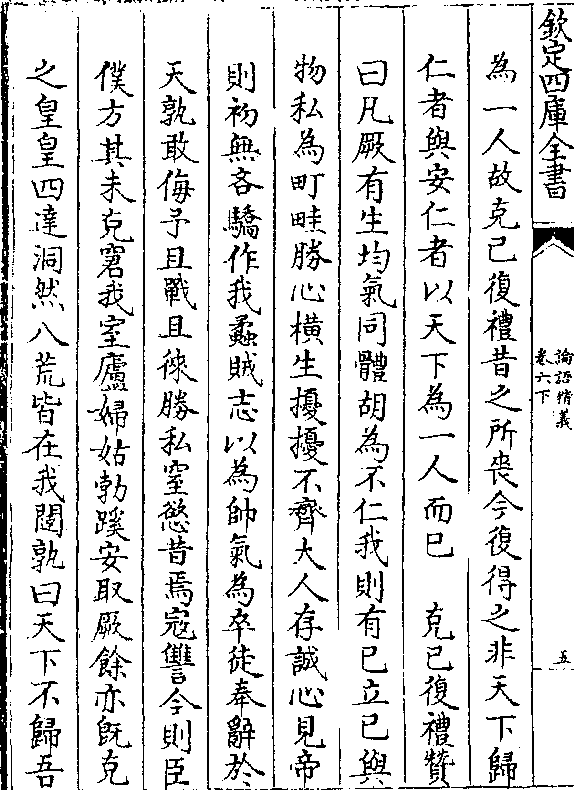 欽定四庫全書
論語精義
卷六下
五
為一人故克己復禮昔之所喪今復得之非天下歸
仁者與安仁者以天下為一人而已　克己復禮贊
曰凡厥有生均氣同體胡為不仁我則有已立已與
物私為町畦勝心横生擾擾不齊大人存誠心見帝
則初無吝驕作我蟊賊志以為帥氣為卒徒奉辭於
天孰敢侮予且戰且徠勝私窒慾昔焉寇讐今則臣
僕方其未克窘我室廬婦姑勃蹊安取厥餘亦既克
之皇皇四達洞然八荒皆在我闥孰曰天下不歸吾